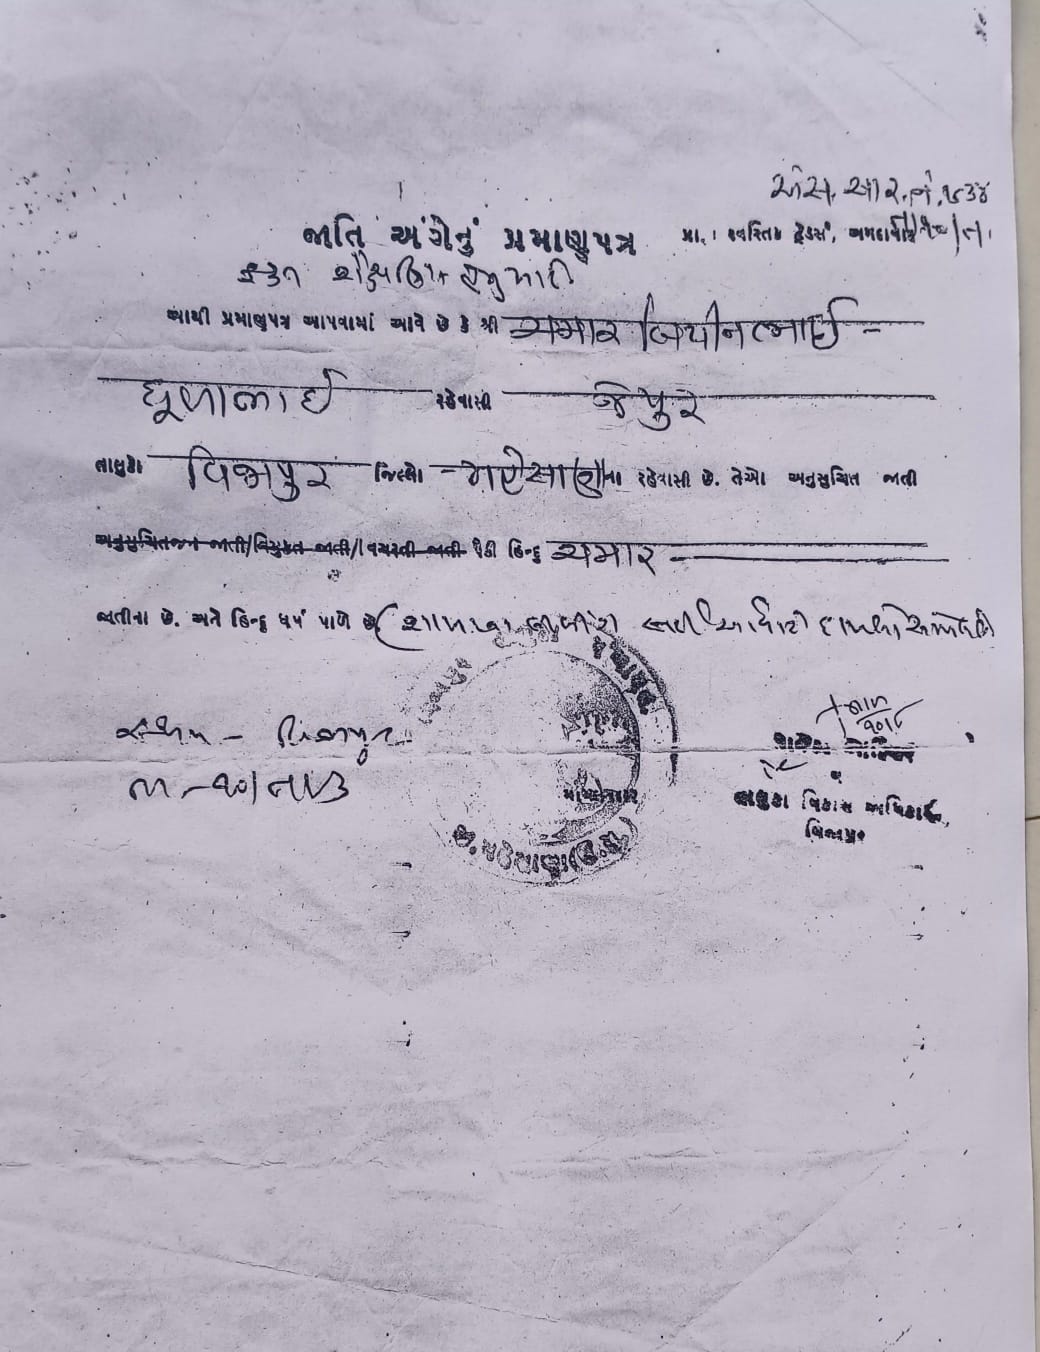 એસ. આર. નં. ૧૮૩૪
જાતિ અંગેનું પ્રમાણપત્ર પ્રા. : સ્વસ્તિક ટ્રેડર્સ, અમદાવાદ
ફક્ત શૈક્ષણિક હેતુ માટે
આથી પ્રમાણપત્ર આપવામાં આવે છે કે શ્રી ચમાર બિપીનભાઈ
ધૂળાભાઈ રહેવાસી જેપુર
તાલુકો વિજાપુર જિલ્લો મહેસાણાના રહેવાસી છે. તેઓ અનુસુચિત જાતી
અનુસુચિતજન જાતી/વિમુક્ત જાતી/વિચરતી જાતી પૈકી હિન્દુ ચમાર
જાતીના છે. અને હિન્દુ ધર્મ પાળે છે
સ્થળ - વિજાપુર
તાલુકા વિકાસ અધિકારી,
વિજાપુર
જી. મહેસાણા (ઉ.ગુ.)